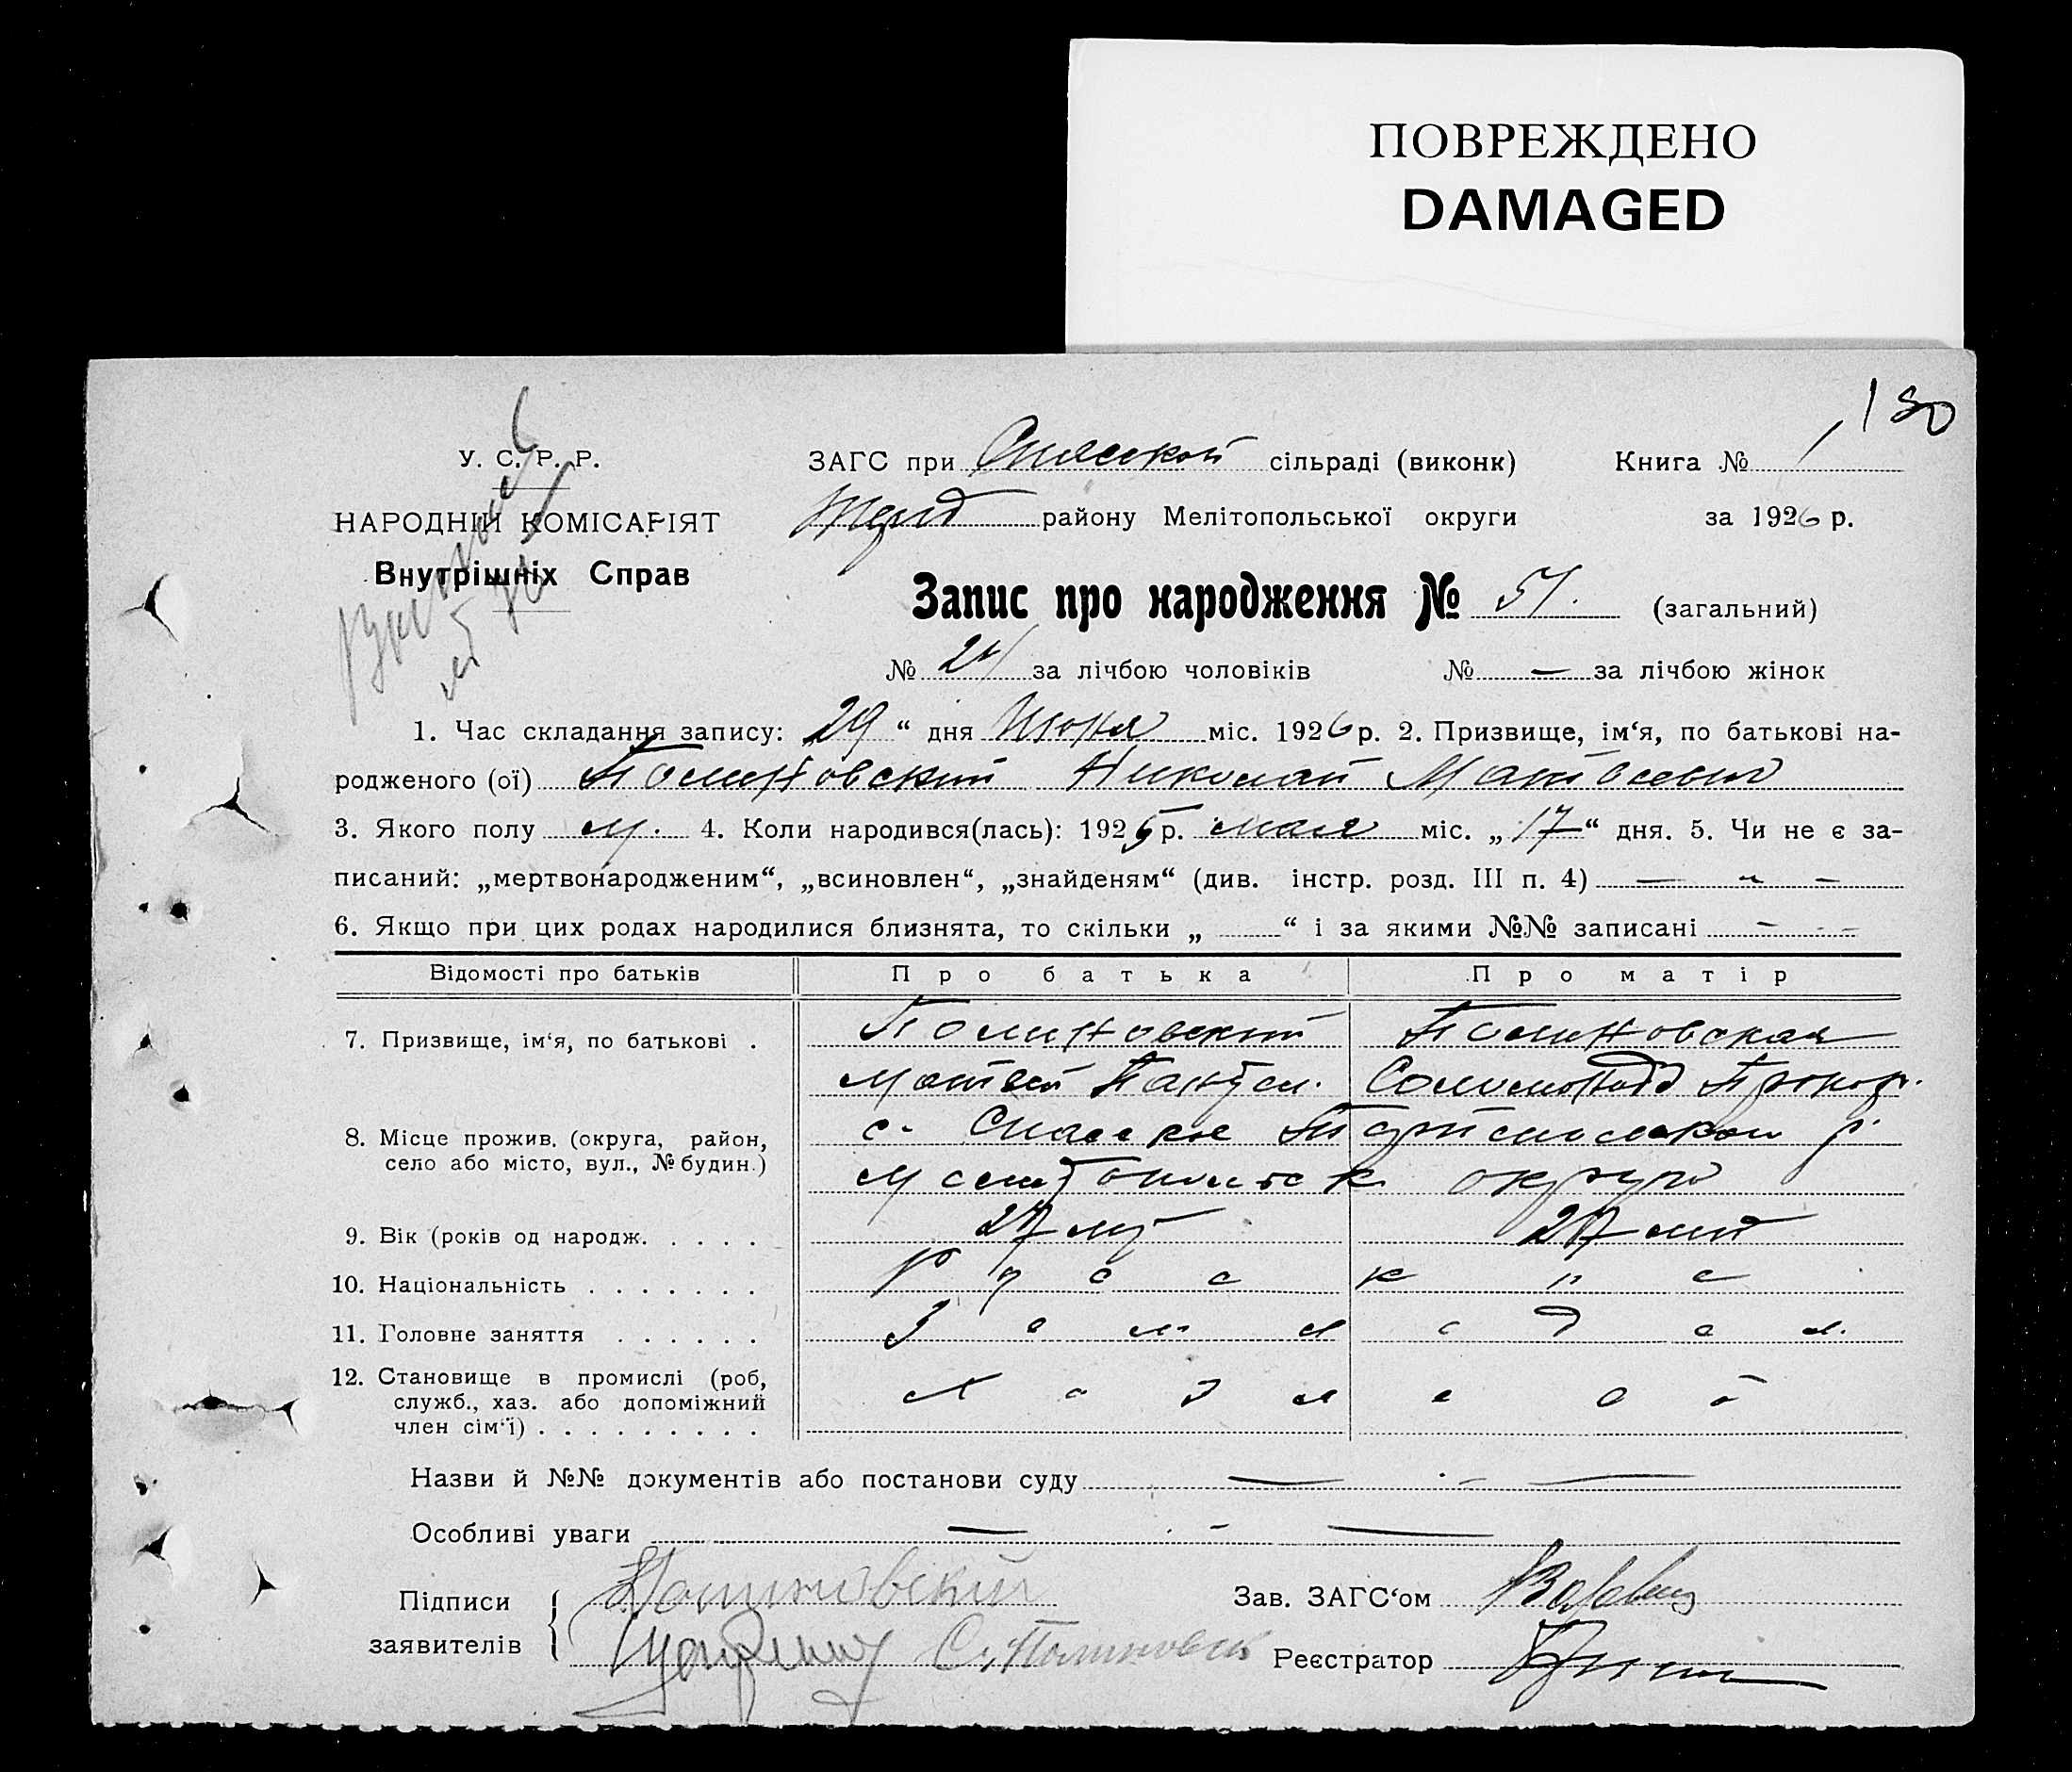 ПОВРЕЖДЕНО
DAMAGED
180
У. С. Р. Р.
ЗАГС при Спасской сільраді (виконк) Книга № 1
НАРОДНІЙ КОМІСАРІЯТ
району Мелітопольської округи за 1926 р.
Внутрішніх Справ
Запис про народження № 51. (загальний)
№ за лічбою чоловіків № — за лічбою жінок
1. Час складання запису: 29 “ дня Июня міс. 1926 р. 2. Призвище, ім‘я, по батькові на-
родженого (ої) Полиновский Николай Матвеевич
3. Якого полу м. 4. Коли народився(лась): 1925 р. мая міс. „ 17 “ дня. 5. Чи не є за-
писаний: „мертвонародженим“, „всиновлен“, „знайденям“ (див. інстр. розд. III п. 4) — „ —
6. Якщо при цих родах народилися близнята, то скільки „ “ і за якими №№ записані —
Відомості про батьків Про батька Про матір
7. Призвище, ім‘я, по батькові . Полиновский Полиновская
Матвей Соломонида Прокоф.
8. Місце прожив. (округа, район, с. Спасское р.
село або місто, вул., № будин.) Мелитопольск округи
9. Вік (років од народж. . . . . 27 лет 27 лет
10. Національність . . . . . . . Русск и е
11. Головне заняття . . . . . . Земледел.
12. Становище в промислі (роб,
служб., хаз. або допоміжний
член сім‘ї) . . . . . . . . . Хозяева
Назви й №№ документів або постанови суду — · —
Особливі уваги — · —
Підписи Полиновский Зав. ЗАГС‘ом
заявителів С. Реєстратор